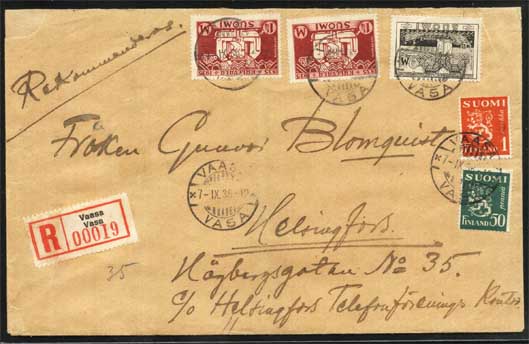 Rekommenderas.
SUOMI
SUOMI
SUOMI
SUOMI
1
FINLAND
SUOMI
50
FINLAND
Fröken Gunvor Blomquist
Helsingfors.
Högbergsgatan No 35.
c/o Helsingfors Telefonförenings Kontor
VAASA
7-IX.36-12
VASA
VASA
VASA
VASA
R
Vaasa
Vasa
00019
35